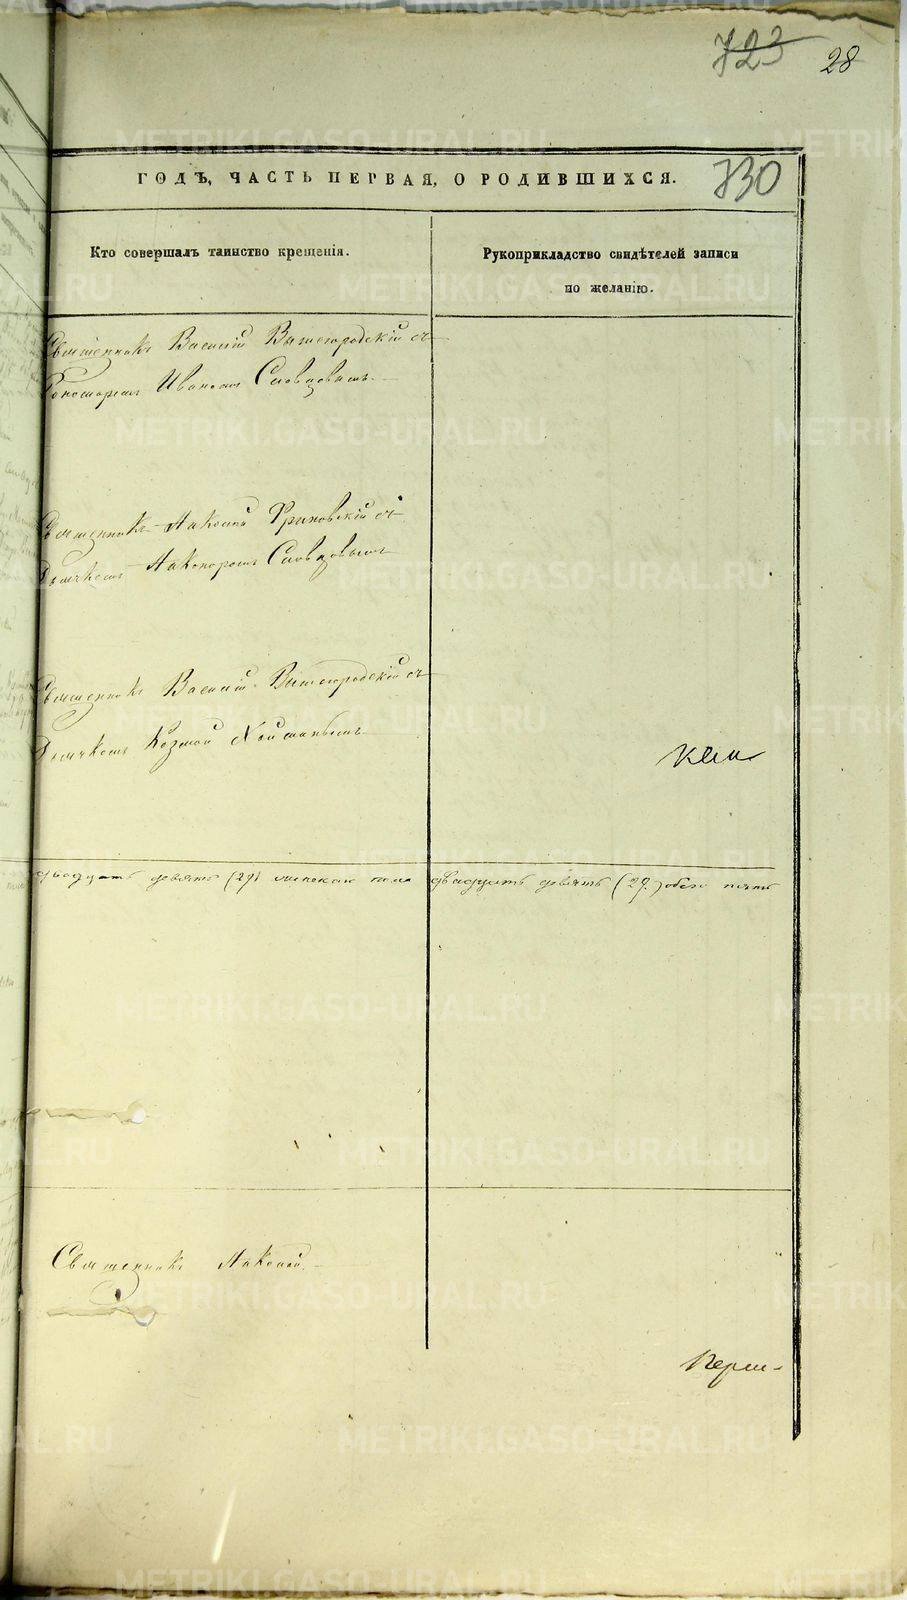 723 28
730
ГОДЪ, ЧАСТЬ ПЕРВАЯ, О РОДИВШИХСЯ.
Кто совершалъ таинство крещенія.
Рукоприкладство свидѣтелей записи
по желанію.
Священникъ Василій Вышегородскій съ
Пономаремъ Иваномъ Словцовымъ.
Священникъ Николай съ
Дьячкомъ Никаноромъ Словцовымъ
Священникъ Василій Вышегородскій съ
Дьячкомъ Козмой
двадцать девять (29) женскаго пола двадцать девять (29) обоего
Священникъ Николай
METRIKI.GASO-URAL.RU